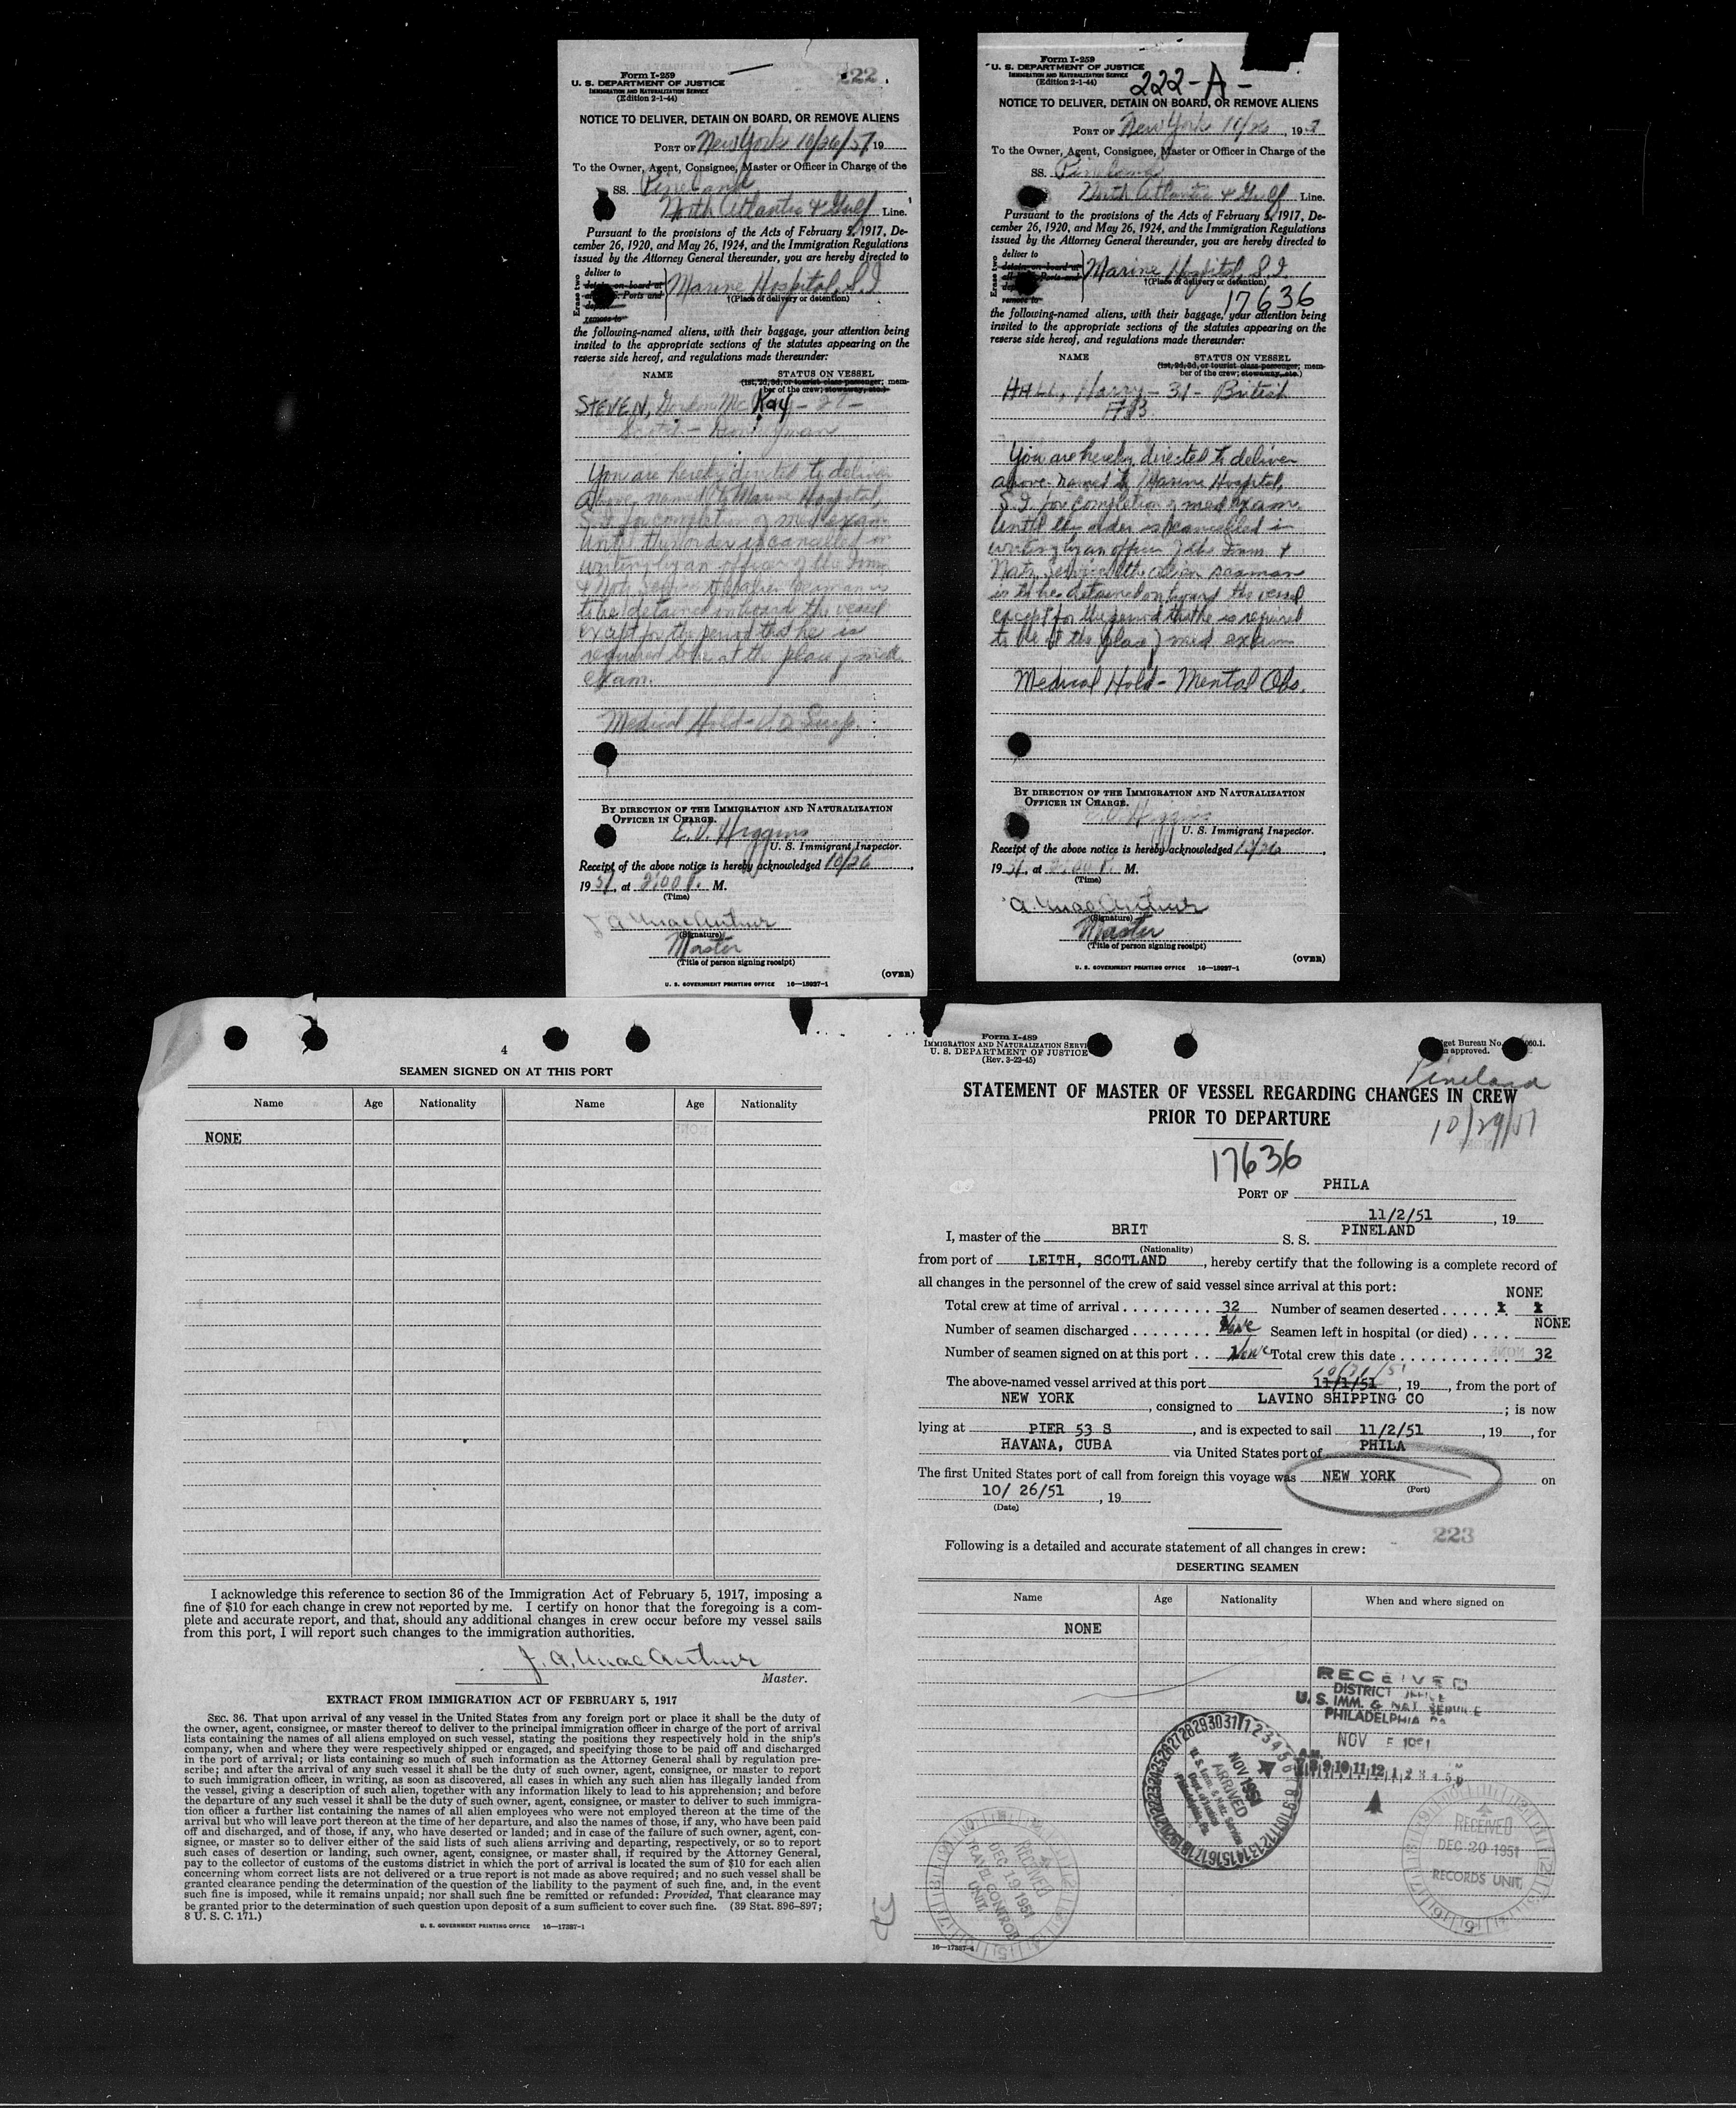 Form I-259
U. S. DEPARTMENT OF JUSTICE
IMMIGRATION AND NATURALIZATION SERVICE
(Edition 2-1-44)
222
NOTICE TO DELIVER, DETAIN ON BOARD, OR REMOVE ALIENS
PORT OF New York 10/26/51 19
To the Owner, Agent, Consignee, Master or Officer in Charge of the
SS. Pineland
North Atlantic & Gulf Line.
Pursuant to the provisions of the Acts of February 5, 1917, De-
cember 26, 1920, and May 26, 1924, and the Immigration Regulations
issued by the Attorney General thereunder, you are hereby directed to
Erase two
deliver to
detain on board at
U. S. Ports and
remove to
Marine Hospital, S.I
†(Place of delivery or detention)
the following-named aliens, with their baggage, your attention being
invited to the appropriate sections of the statutes appearing on the
reverse side hereof, and regulations made thereunder:
NAME STATUS ON VESSEL
(1st, 2d, 3d, or tourist class passenger; mem-
ber of the crew; stowaway, etc.)
STEVEN, Gordon Mc Kay - 27 -
You are hereby directed to deliver
above named to Marine Hospital,
S.I. for completion of med exam.
Until this order is cancelled in
writing by an officer of the Imm
& Natz Service the alien seaman is
to be detained on board the vessel
except for the period that he is
required to be at the place of med.
exam.
Medical Hold - V.D. Susp.
BY DIRECTION OF THE IMMIGRATION AND NATURALIZATION
OFFICER IN CHARGE.
E. V. Higgins
U. S. Immigrant Inspector.
Receipt of the above notice is hereby acknowledged 10/26,
1951, at 2:00 P. M.
(Time)
J A MacArthur
(Signature)
Master
(Title of person signing receipt)
(OVER)
U. S. GOVERNMENT PRINTING OFFICE 16—18937-1
Form I-259
U. S. DEPARTMENT OF JUSTICE
IMMIGRATION AND NATURALIZATION SERVICE
(Edition 2-1-44)
222-A-
NOTICE TO DELIVER, DETAIN ON BOARD, OR REMOVE ALIENS
PORT OF New York 10/26, 19
To the Owner, Agent, Consignee, Master or Officer in Charge of the
SS. Pineland
North Atlantic & Gulf Line.
Pursuant to the provisions of the Acts of February 5, 1917, De-
cember 26, 1920, and May 26, 1924, and the Immigration Regulations
issued by the Attorney General thereunder, you are hereby directed to
Erase two
deliver to
detain on board at
remove to
Marine Hospital, S.I
†(Place of delivery or detention)
17636
the following-named aliens, with their baggage, your attention being
invited to the appropriate sections of the statutes appearing on the
reverse side hereof, and regulations made thereunder:
NAME STATUS ON VESSEL
(1st, 2d, 3d, or tourist class passenger; mem-
ber of the crew; stowaway, etc.)
HALL, Harry - 31 - British
You are hereby directed to deliver
above named to Marine Hospital,
S.I. for completion of med exam.
Until this order is cancelled in
writing by an officer of the Imm. &
Natz Service the alien seaman
is to be detained on board the vessel
except for the period that he is required
to be at the place of med exam
Medical Hold - Mental Obs.
BY DIRECTION OF THE IMMIGRATION AND NATURALIZATION
OFFICER IN CHARGE.
E. V. Higgins
U. S. Immigrant Inspector.
Receipt of the above notice is hereby acknowledged 10/26,
1951, at 2:00 P. M.
(Time)
A MacArthur
(Signature)
Master
(Title of person signing receipt)
(OVER)
U. S. GOVERNMENT PRINTING OFFICE 16—18937-1
4
SEAMEN SIGNED ON AT THIS PORT
Name Age Nationality Name Age Nationality
NONE
I acknowledge this reference to section 36 of the Immigration Act of February 5, 1917, imposing a
fine of $10 for each change in crew not reported by me. I certify on honor that the foregoing is a com-
plete and accurate report, and that, should any additional changes in crew occur before my vessel sails
from this port, I will report such changes to the immigration authorities.
J. A. MacArthur
Master.
EXTRACT FROM IMMIGRATION ACT OF FEBRUARY 5, 1917
SEC. 36. That upon arrival of any vessel in the United States from any foreign port or place it shall be the duty of
the owner, agent, consignee, or master thereof to deliver to the principal immigration officer in charge of the port of arrival
lists containing the names of all aliens employed on such vessel, stating the positions they respectively hold in the ship's
company, when and where they were respectively shipped or engaged, and specifying those to be paid off and discharged
in the port of arrival; or lists containing so much of such information as the Attorney General shall by regulation pre-
scribe; and after the arrival of any such vessel it shall be the duty of such owner, agent, consignee, or master to report
to such immigration officer, in writing, as soon as discovered, all cases in which any such alien has illegally landed from
the vessel, giving a description of such alien, together with any information likely to lead to his apprehension; and before
the departure of any such vessel it shall be the duty of such owner, agent, consignee, or master to deliver to such immigra-
tion officer a further list containing the names of all alien employees who were not employed thereon at the time of the
arrival but who will leave port thereon at the time of her departure, and also the names of those, if any, who have been paid
off and discharged, and of those, if any, who have deserted or landed; and in case of the failure of such owner, agent, con-
signee, or master so to deliver either of the said lists of such aliens arriving and departing, respectively, or so to report
such cases of desertion or landing, such owner, agent, consignee, or master shall, if required by the Attorney General,
pay to the collector of customs of the customs district in which the port of arrival is located the sum of $10 for each alien
concerning whom correct lists are not delivered or a true report is not made as above required; and no such vessel shall be
granted clearance pending the determination of the question of the liability to the payment of such fine, and, in the event
such fine is imposed, while it remains unpaid; nor shall such fine be remitted or refunded: Provided, That clearance may
be granted prior to the determination of such question upon deposit of a sum sufficient to cover such fine. (39 Stat. 896-897;
8 U. S. C. 171.)
U. S. GOVERNMENT PRINTING OFFICE 16—17387-1
Form I-489
IMMIGRATION AND NATURALIZATION SERVI
U. S. DEPARTMENT OF JUSTICE
(Rev. 3-22-45)
get Bureau No. 060.1.
approved.
Pineland
10/29/51
STATEMENT OF MASTER OF VESSEL REGARDING CHANGES IN CREW
PRIOR TO DEPARTURE
17636
PORT OF PHILA
11/2/51, 19
I, master of the BRIT S. S. PINELAND
(Nationality)
from port of LEITH, SCOTLAND, hereby certify that the following is a complete record of
all changes in the personnel of the crew of said vessel since arrival at this port:
NONE
Total crew at time of arrival 32 Number of seamen deserted
Number of seamen discharged None Seamen left in hospital (or died) NONE
Number of seamen signed on at this port None Total crew this date 32
The above-named vessel arrived at this port 11/1/51 10/31/51, 19, from the port of
NEW YORK, consigned to LAVINO SHIPPING CO; is now
lying at PIER 53 S, and is expected to sail 11/2/51, 19, for
HAVANA, CUBA via United States port of PHILA
The first United States port of call from foreign this voyage was NEW YORK on
(Port)
10/ 26/51, 19
(Date)
223
Following is a detailed and accurate statement of all changes in crew:
DESERTING SEAMEN
Name Age Nationality When and where signed on
NONE
RECEIVED
DISTRICT OFFICE
U. S. IMM. & NAT. SERVICE
PHILADELPHIA PA
NOV 5 1951
NOV 1951
ARRIVED
U. S. Imm. & Natz. Service
Dept. of Justice
Philadelphia, Pa.
RECEIVED
DEC 19 1951
TRAVEL CONTROL
UNIT
RECEIVED
DEC 20 1951
RECORDS UNIT
16—17387-1